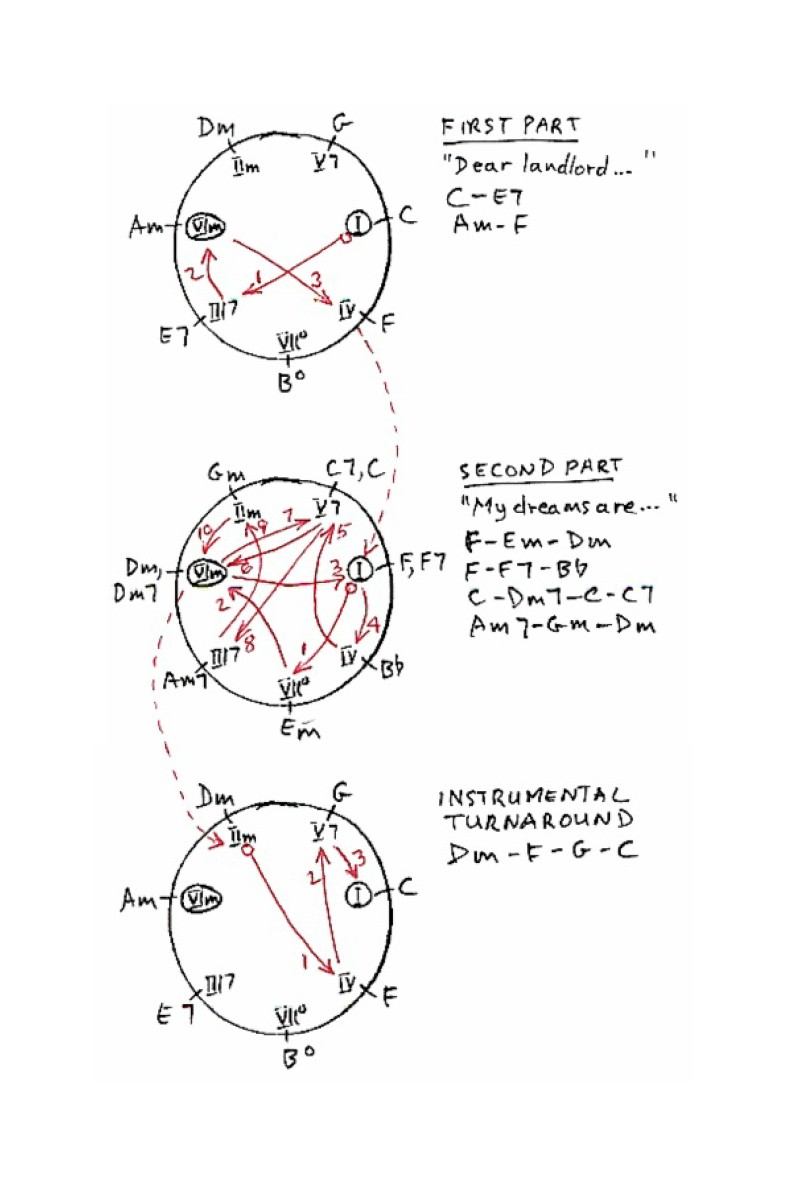 Dm
G
IIm
V7
Am
VIm
I
C
III7
IV
E7
F
VII°
B°
1
2
3
FIRST PART
"Dear landlord... "
C-E7
Am-F
Gm
C7, C
IIm
V7
Dm,
Dm7
VIm
I
F, F7
III7
IV
Am7
Bb
VII°
Em
1
2
3
4
5
6
7
8
9
10
SECOND PART
"My dreams are... "
F-Em-Dm
F-F7-Bb
C-Dm7-C-C7
Am7-Gm-Dm
Dm
G
IIm
V7
Am
VIm
I
C
III7
IV
E7
F
VII°
B°
1
2
3
INSTRUMENTAL
TURNAROUND
Dm-F-G-C